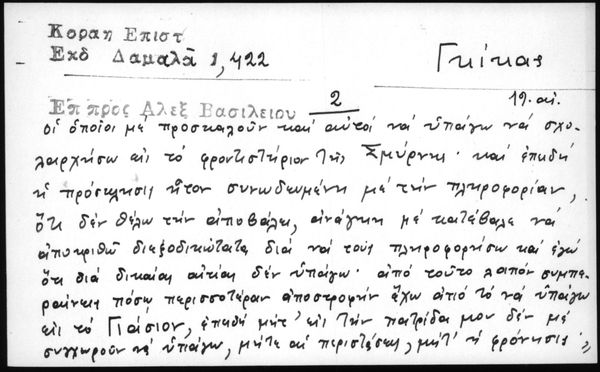 Κοραη Επιστ
Εκδ Δαμαλᾶ 1,422
Γκίκας
Επ προς Αλεξ Βασιλειου 2 19. αἰ.
οἱ ὁποῖοι μὲ προσκαλοῦν καὶ αὐτοὶ νὰ ὑπάγω νὰ σχο-
λαρχήσω εἰς τὸ φροντιστήριον τῆς Σμύρνης· καὶ ἐπειδὴ
ἡ πρόσκλησις ἦτον συνωδευμένη μὲ τὴν πληροφορίαν,
ὅτι δὲν θέλω τὴν ἀποβάλει, ἀνάγκη μὲ κατέβαλε νὰ
ἀποκριθῶ διεξοδικώτατα διὰ νὰ τοὺς πληροφορήσω καὶ ἐγὼ
ὅτι διὰ δικαίαν αἰτίαν δὲν ὑπάγω· ἀπὸ τοῦτο λοιπὸν συμπε-
ραίνεις πόσην περισσοτέραν ἀποστροφὴν ἔχω ἀπὸ τὸ νὰ ὑπάγω
εἰς τὸ Γιάσιον, ἐπειδὴ μήτ' εἰς τὴν πατρίδα μου δὲν μὲ
συγχωροῦν νὰ ὑπάγω, μήτε αἱ περιστάσεις, μήτ' ἡ φρόνησις